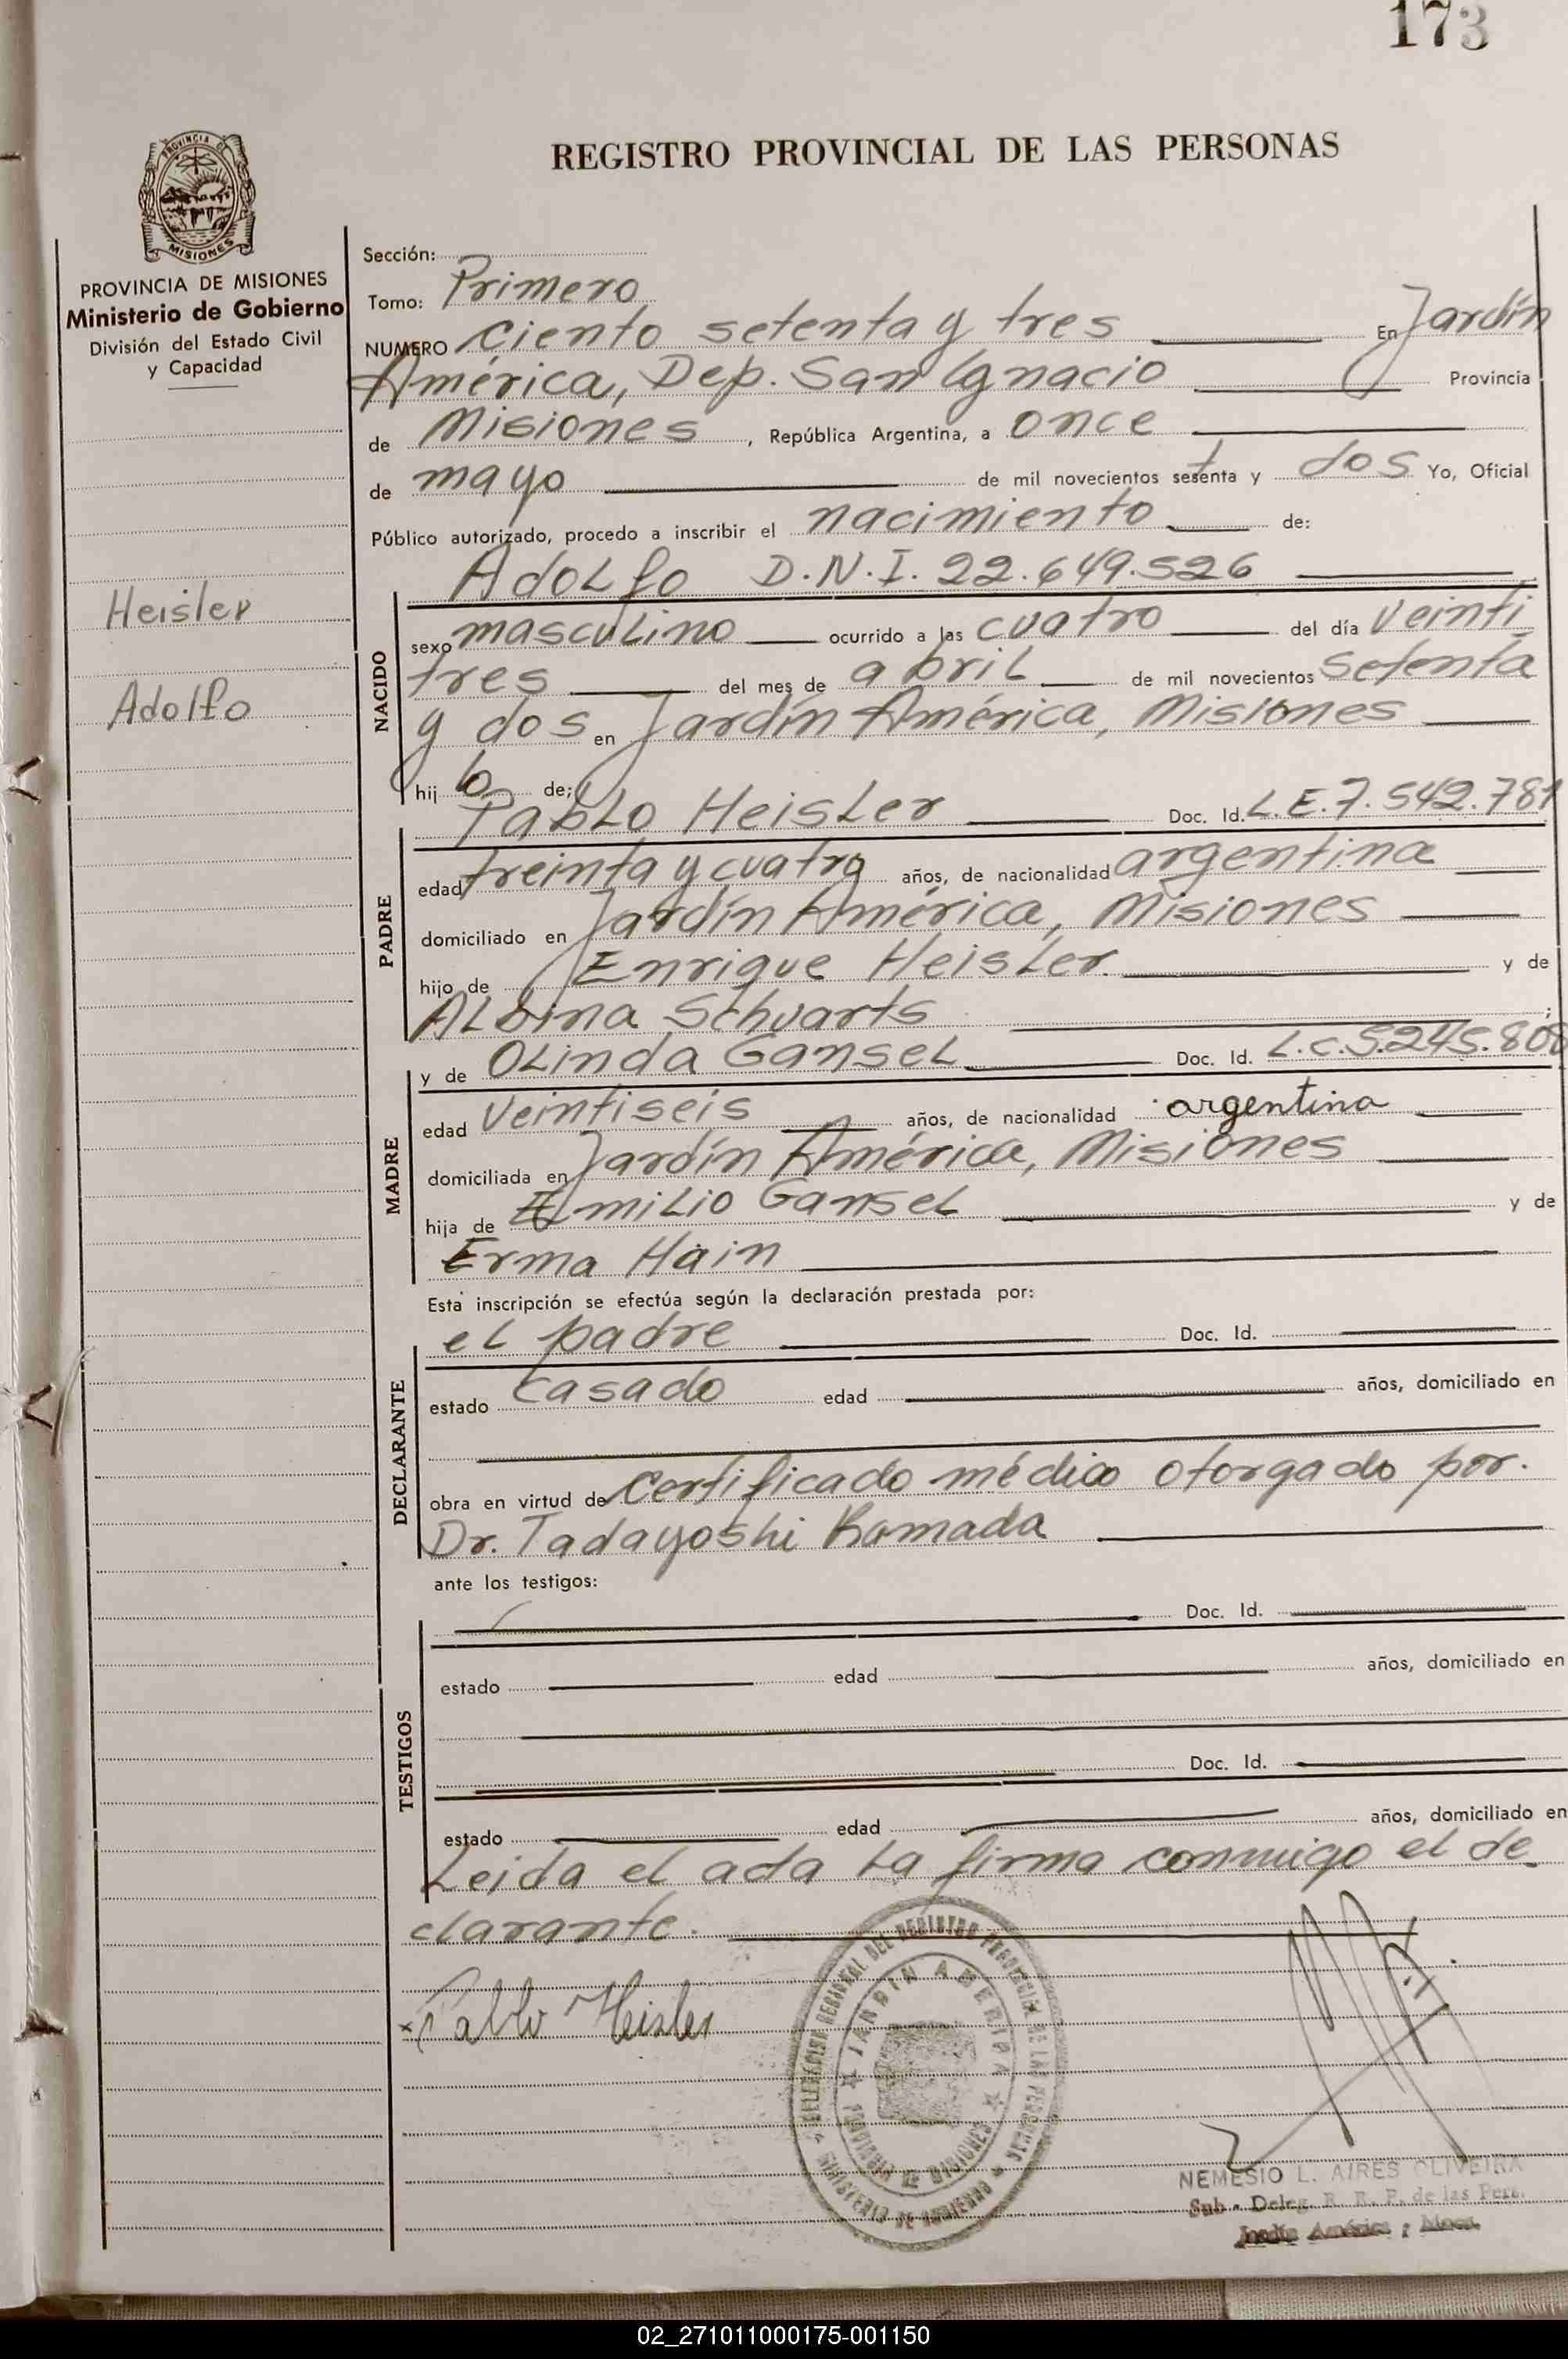 173
REGISTRO PROVINCIAL DE LAS PERSONAS
PROVINCIA DE
MISIONES
PROVINCIA DE MISIONES
Ministerio de Gobierno
División del Estado Civil
y Capacidad
Heisler
Adolfo
Sección:
Tomo: Primero
NUMERO ciento setenta y tres En Jardín
América, Dep. San Ignacio Provincia
de Misiones, República Argentina, a once
de mayo de mil novecientos setenta y dos Yo, Oficial
Público autorizado, procedo a inscribir el nacimiento de:
Adolfo D.N.I. 22.649.526
NACIDO
sexo masculino ocurrido a las cuatro del día veinti
tres del mes de abril de mil novecientos setenta
y dos en Jardín América, Misiones
hijo de;
Pablo Heisler Doc. Id. L.E.7.542.781
PADRE
edad treinta y cuatro años, de nacionalidad argentina
domiciliado en Jardín América, Misiones
hijo de Enrique Heisler. y de
Albina Schvarts ;
y de Olinda Gansel Doc. Id. L.C.5.245.808
MADRE
edad veintiseis años, de nacionalidad argentina
domiciliada en Jardín América, Misiones
hija de Emilio Gansel y de
Erma Hain
Esta inscripción se efectúa según la declaración prestada por:
el padre Doc. Id.
DECLARANTE
estado casado edad años, domiciliado en
obra en virtud de certificado médico otorgado por.
Dr. Tadayoshi Bamada
ante los testigos:
Doc. Id.
TESTIGOS
estado edad años, domiciliado en
Doc. Id.
estado edad años, domiciliado en
Leida el acta la firma conmigo el de
clarante.
Pablo Heisler
DELEGACION REGIONAL DEL REGISTRO PROVINCIAL DE LAS PERSONAS
JARDIN AMERICA
NEMESIO L. AIRES OLIVEIRA
Sub - Deleg. R. R. P. de las Pers.
Jardín América : Mnes.
02_271011000175-001150